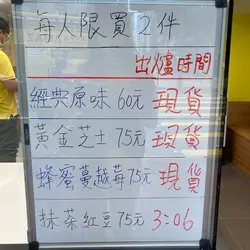 每人限買2件
出爐時間
經典原味 60元 現貨
黃金芝士 75元 現貨
蜂蜜蔓越莓 75元 現貨
抹茶紅豆 75元 3:06